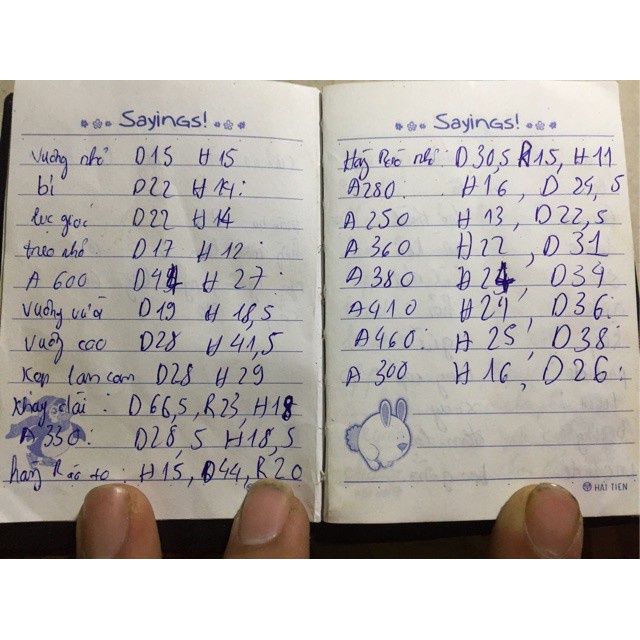 Sayings!
Vuông nhỏ D15 H15
bí D22 H14
lục giác D22 H14
treo nhỏ D17 H12
A 600 D44 H 27
Vuông vừa D19 H 18,5
Vuông cao D28 H 41,5
Kẹp lam can D28 H 29
Khay dài : D 66,5, R23, H18
A 330: D28,5 H18,5
hàng Rào to : H15, D44, R20
Sayings!
Hàng Rào nhỏ: D30,5 R15, H11
A280 H16, D 24,5
A 250 H 13, D22,5
A 360 H22, D 31
A 380 H24, D34
A410 H29, D36
A460: H 25, D38
A 300 H 16, D26
HẢI TIẾN